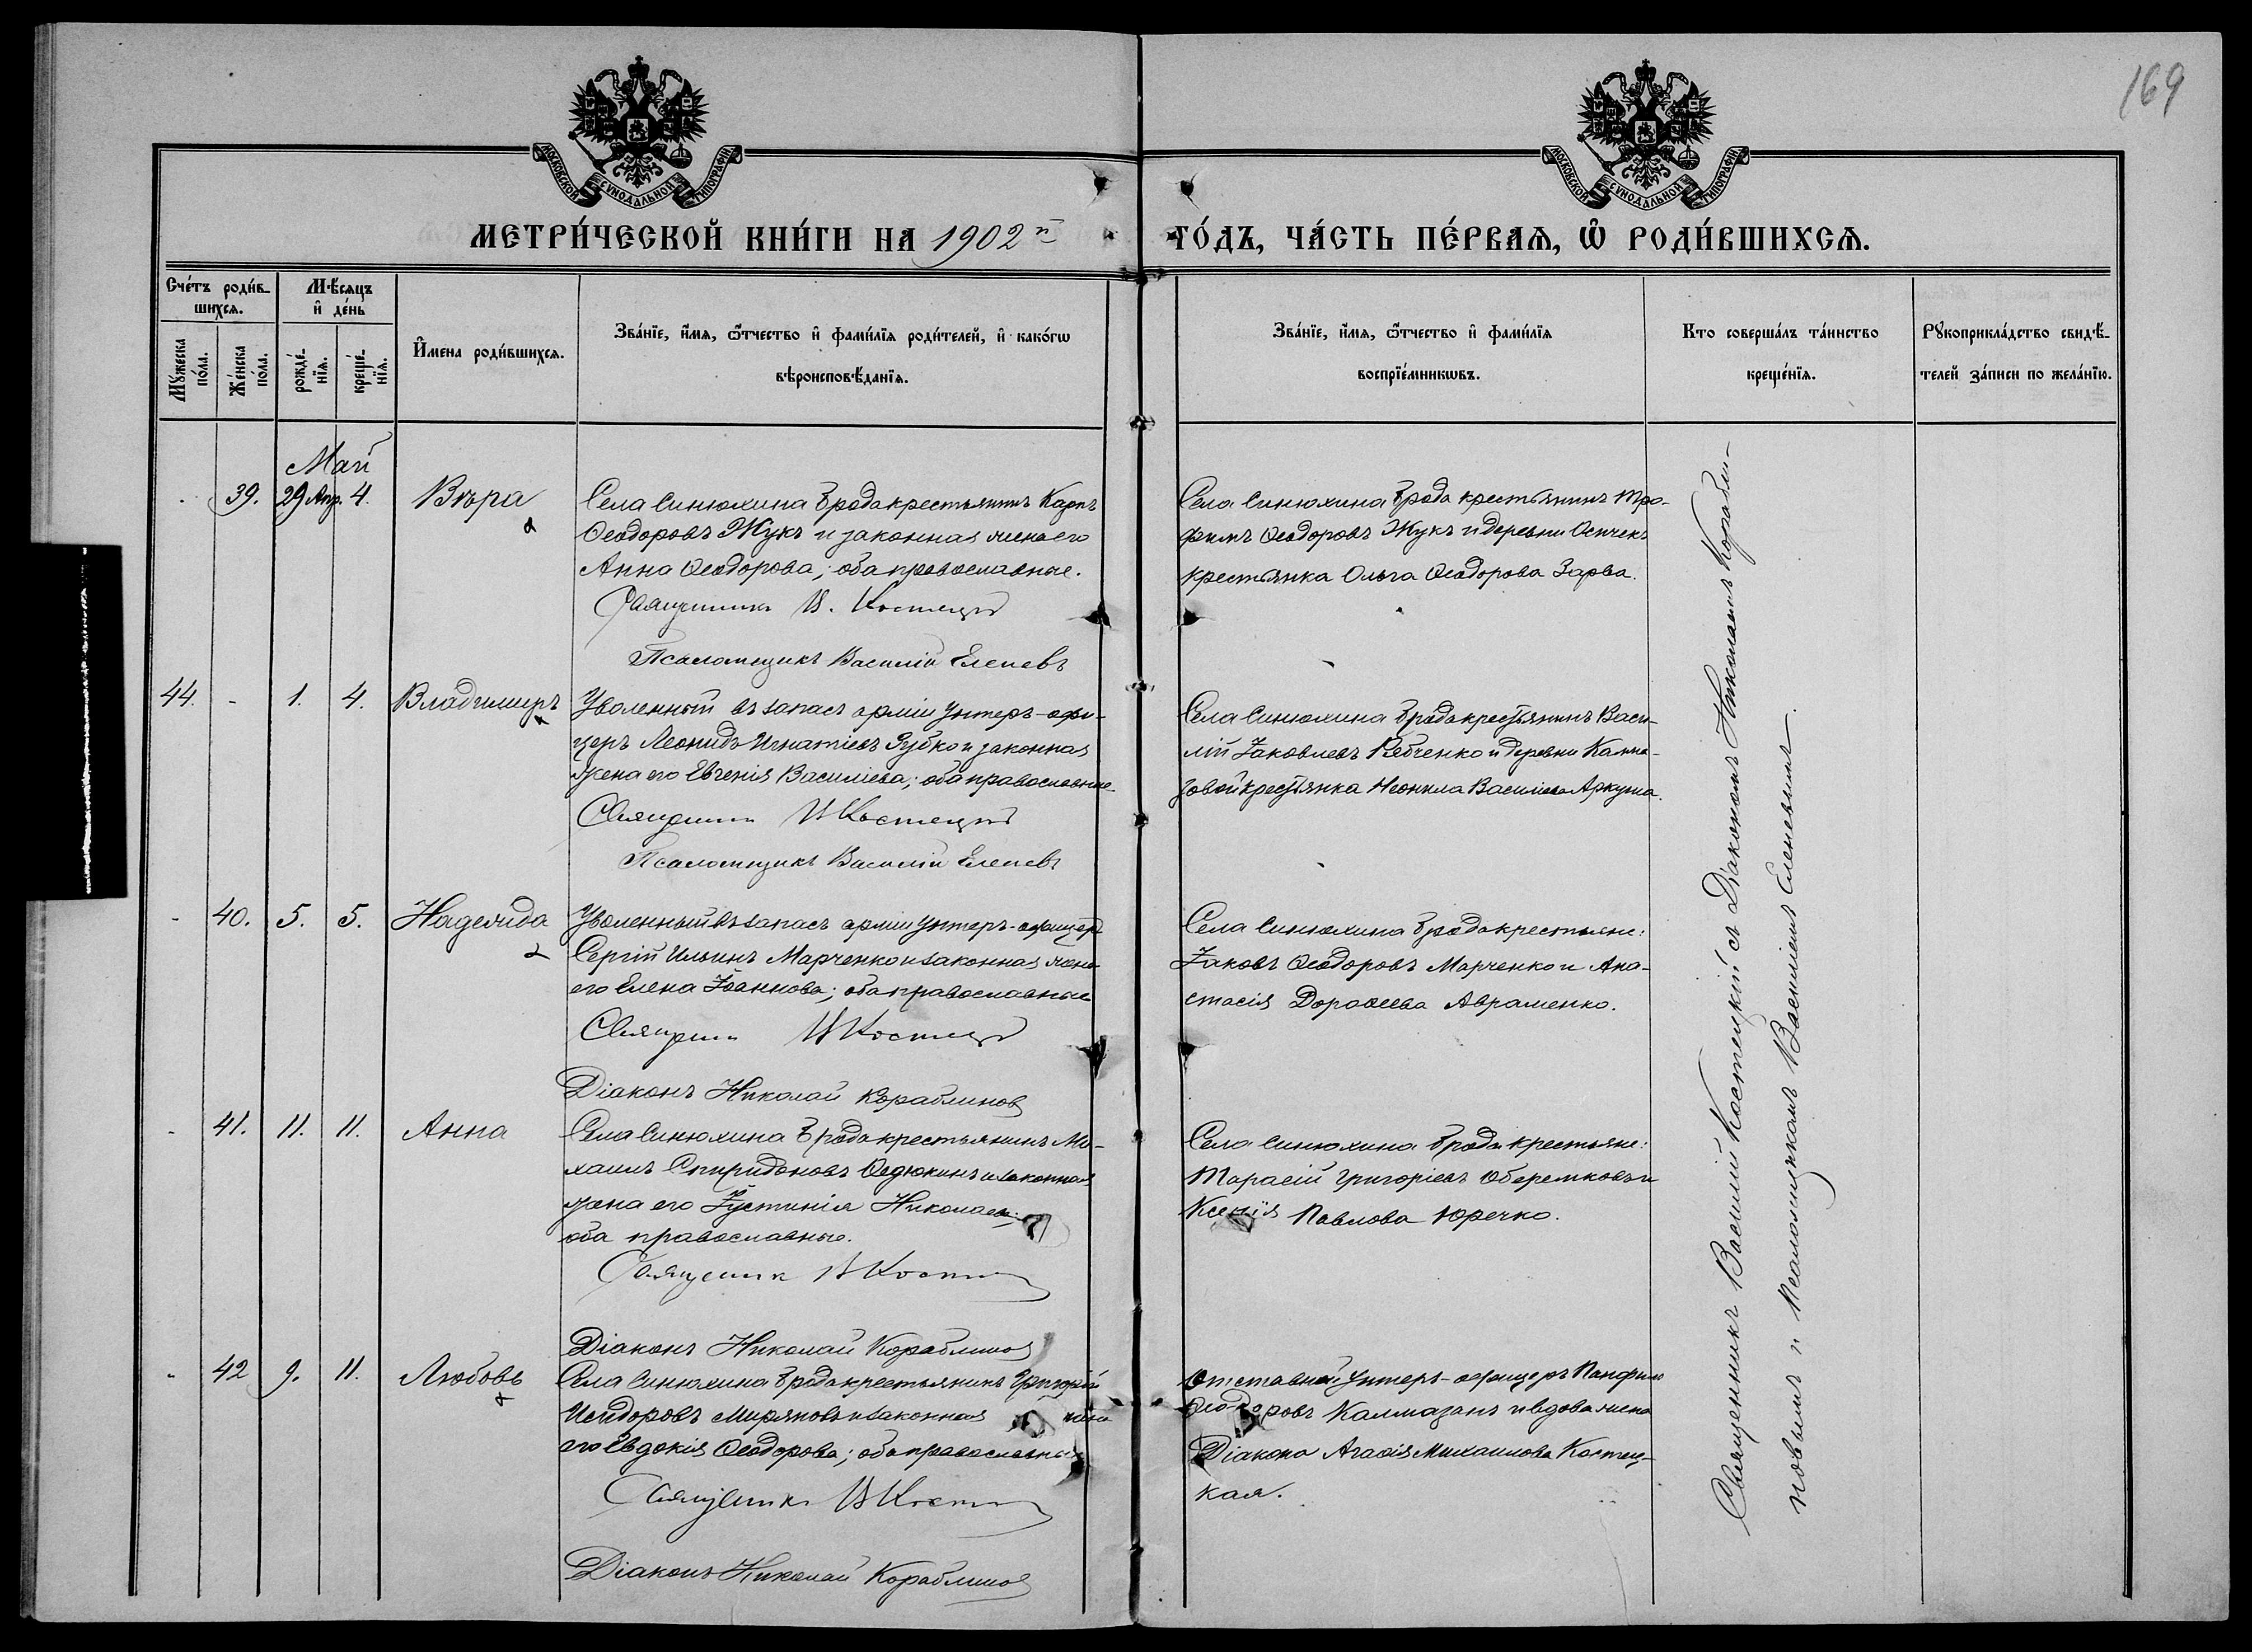 169
МОСКОВСКОЙ СѴНОДАЛЬНОЙ ТИПОГРАФІИ
МОСКОВСКОЙ СѴНОДАЛЬНОЙ ТИПОГРАФІИ
МЕТРИ́ЧЕСКОЙ КНИ́ГИ НА 1902й
ГО́ДЪ, ЧА́СТЬ ПЕ́РВАѦ, Ѡ҆ РОДИ́ВШИХСѦ.
Сче́тъ роди́в-
шихсѧ.
Мꙋ́жеска по́ла.
Же́нска по́ла.
Мѣ́сяцъ
и҆ де́нь
рожде́-нїѧ.
креще́-нїѧ.
И҆мена роди́вшихсѧ.
Зва́нїе, и҆́мѧ, ѻ҆́тчество и҆ фами́лїѧ роди́телей, и҆ како́гѡ
вѣроисповѣ́данїѧ.
Зва́нїе, и҆́мѧ, ѻ҆́тчество и҆ фами́лїѧ
воспрїе́мникѡвъ.
Кто соверша́лъ та́инство
креще́нїѧ.
Рꙋкоприкла́дство свидѣ́-
телей за́писи по жела́нїю.
Май
39. 29 Апр. 4. Вѣра
Села Синюхина Брода крестьянинъ Карпъ
Ѳеодоровъ Жукъ и законная жена его
Анна Ѳеодорова; оба православные.
Священникъ В. Костецкій
Псаломщикъ Василій Еленевъ
Села Синюхина Брода крестьянинъ Тро-
фимъ Ѳеодоровъ Жукъ и деревни Осичекъ
крестьянка Ольга Ѳеодорова Зарва.
44. - 1. 4. Владимиръ
Уволенный въ запасъ арміи унтеръ-офи-
церъ Леонидъ Игнатіевъ Зубко и законная
жена его Евгенія Василіева; оба православные.
Священникъ В Костецкій
Псаломщикъ Василій Еленевъ
Села Синюхина Брода крестьянинъ Васи-
лій Іаковлевъ Рябченко и деревни Калма-
зовой крестьянка Неонила Василіева Аркуша.
- 40. 5. 5. Надежда
Уволенный въ запасъ арміи унтеръ-офицеръ
Сергій Ильинъ Марченко и законная жена
его Елена Іоаннова; оба православные
Священникъ В Костецкій
Діаконъ Николай Кораблиновъ
Села Синюхина Брода крестьяне:
Іаковъ Ѳеодоровъ Марченко и Ана-
стасія Дороѳеева Авраменко.
- 41. 11. 11. Анна
Села Синюхина Брода крестьянинъ Ми-
хаилъ Спиридоновъ Ѳедюкинъ и законная
жена его Іустинія Николаева;
оба православные.
Священникъ В Костецкій
Діаконъ Николай Кораблиновъ
Села Синюхина Брода крестьяне:
Тарасій Григоріевъ Оберемковъ и
Ксенія Павлова Юречко.
- 42 9. 11. Любовь
Села Синюхина Брода крестьянинъ Григорій
Исидоровъ Миряновъ и законная жена
его Евдокія Ѳеодорова; оба православные
Священникъ В Костецкій
Діаконъ Николай Кораблиновъ
Отставной унтеръ-офицеръ Панфилъ
Ѳеодоровъ Калмазанъ и вдова жена
Діакона Агаѳія Михаилова Костец-
кая.
Священникъ Василій Костецкій съ Діакономъ Николаемъ Корабли-
новымъ и Псаломщикомъ Василіемъ Еленевымъ.